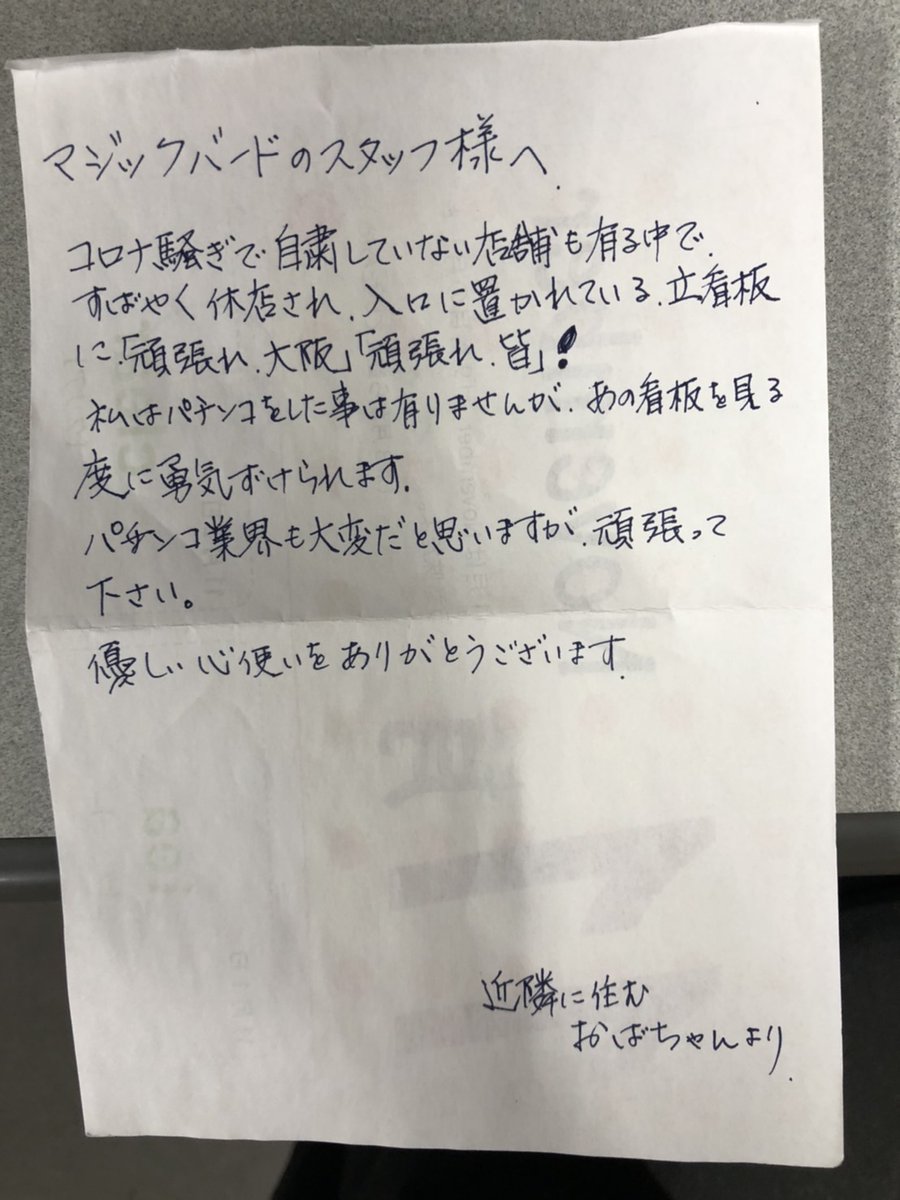 マジックバードのスタッフ様へ.
コロナ騒ぎで自粛していない店舗も有る中で.
すばやく休店され.入口に置かれている.立看板
に.「頑張れ.大阪」「頑張れ.皆」!
私はパチンコをした事は有りませんが.あの看板を見る
度に勇気ずけられます.
パチンコ業界も大変だと思いますが.頑張って
下さい。
優しい心使いをありがとうございます.
近隣に住む
おばちゃんより.